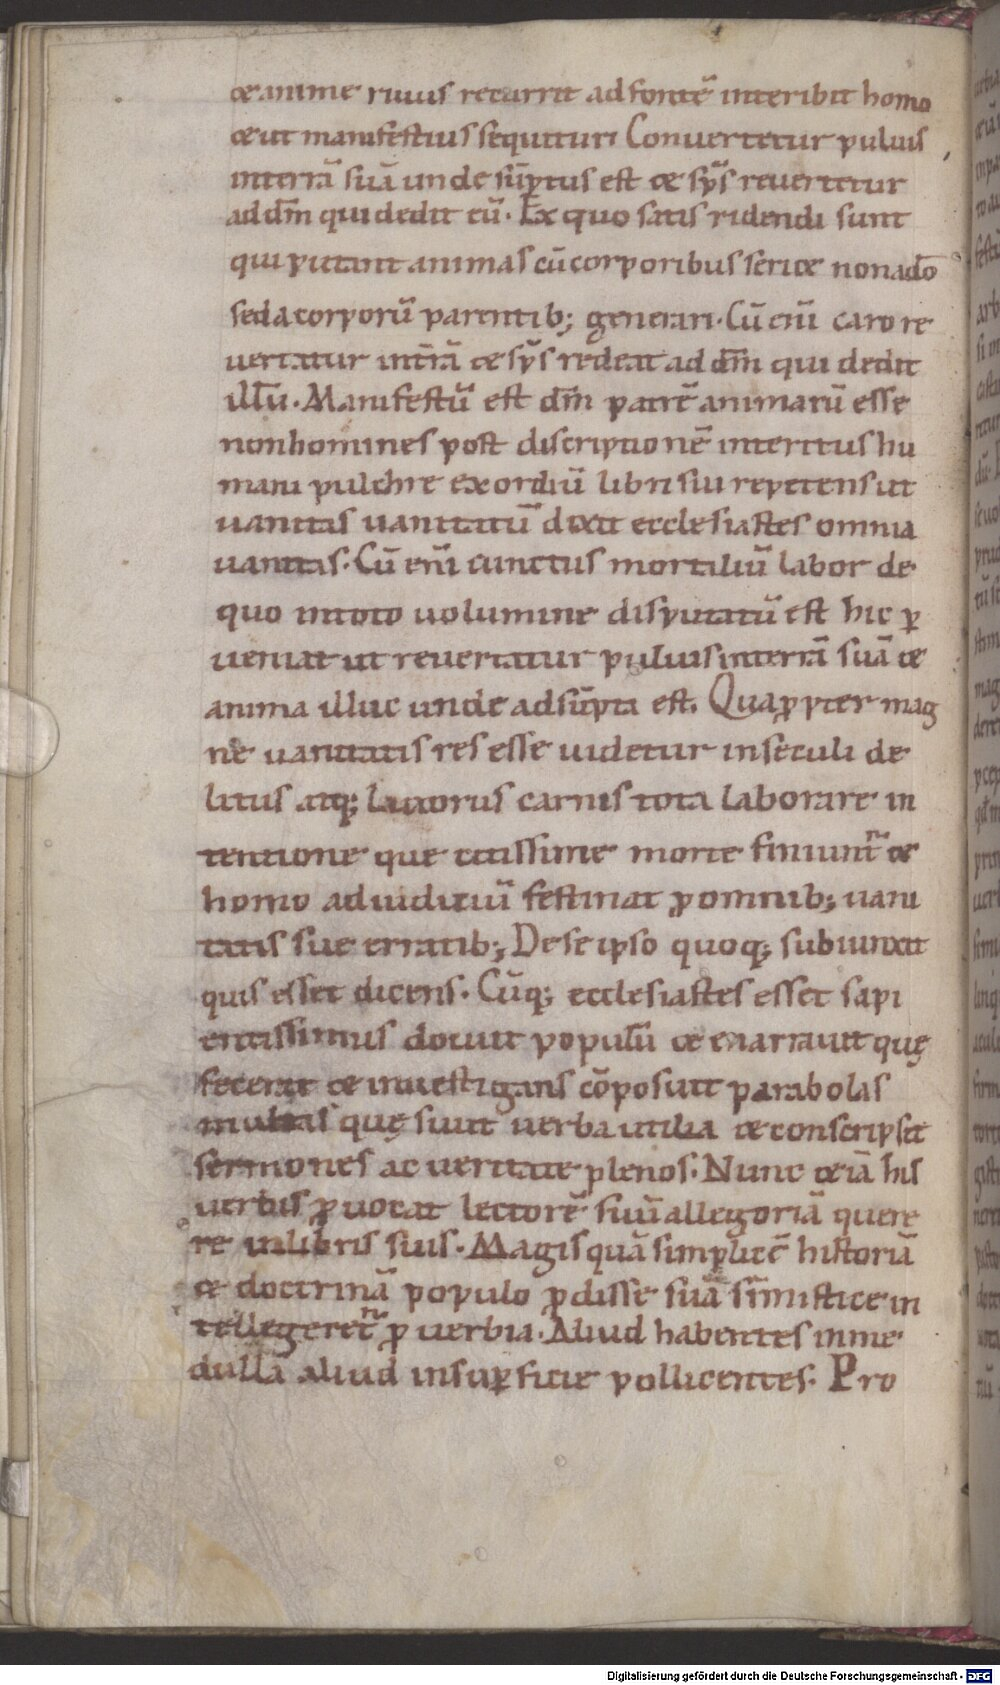 & anime riuus recurrit ad fontē interibit homo
& ut manifestius sequitur; Conuertetur puluis
in terrā suā unde sūptus est & sp̄s reuertetur
ad dm̄ qui dedit eū. Ex quo satis ridendi sunt
qui putant animas cū corporibus seri & non a dō
sed a corporū parentib; generari. Cū eni caro re
uertatur in t̄rā & sp̄s redeat ad dm̄ qui dedit
illū. Manifestū est dm̄ patrē animarū esse
non homines post discriptionē interitus hu
mani pulchre exordiū libri sui repetens ait
uanitas uanitatū dixit ecclesiastes omnia
uanitas. Cū eni cunctus mortaliū labor de
quo in toto uolumine disputatū est hic ꝑ
ueniat ut reuertatur puluis in terrā suā &
anima illuc unde adsūpta est. Quaꝓpter mag
ne uanitatis res esse uidetur in seculi de
litiis atq; laborus carnis tota laborare in
tentione que citissime morte finiunt̄ &
homo ad iuditiū festinat ꝓ omnib; uani
tatis sue erratib; De se ipso quoq; subiunxit
quis esset dicens. Cūq; ecclesiastes esset sapi
entissimus docuit populū & enarrauit quę
fecerat & inuestigans cōposuit parabolas
multas quę siuit uerba utilia & conscripsit
sermones ac ueritate plenos. Nunc & iā his
uerbis ꝓuocat lectorē suū allegoriā quere
re in libris suis. Magis quā simplicē historiā
& doctrinā populo ꝓdisse suā s; mistice in
tellegeret̄ ꝓuerbia. Aliud habentes in me
dulla aliud in suꝑficie pollicentes. Pro
Digitalisierung gefördert durch die Deutsche Forschungsgemeinschaft - DFG